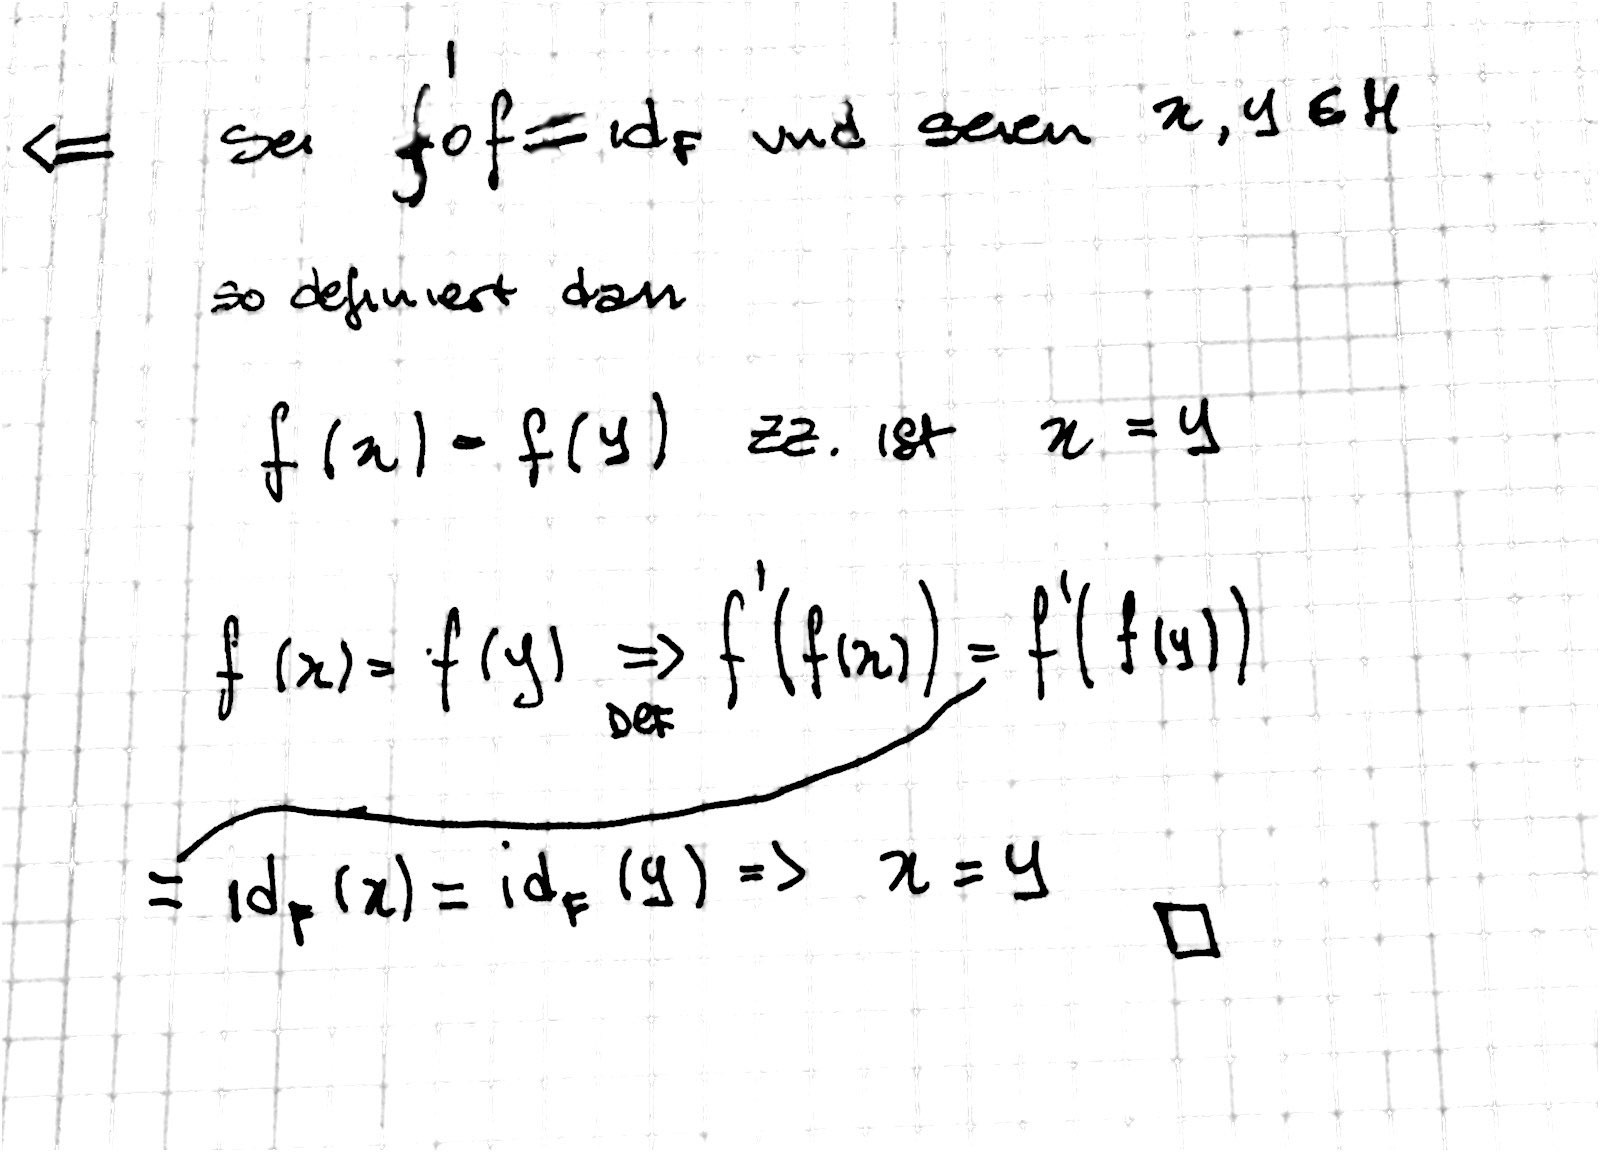 <= Sei f' o f = id_F und seien x, y ∈ M
so definiert dan
f(x) = f(y) zz. ist x = y
f(x) = f(y) => DEF f'(f(x)) = f'(f(y))
= id_F(x) = id_F(y) => x = y □